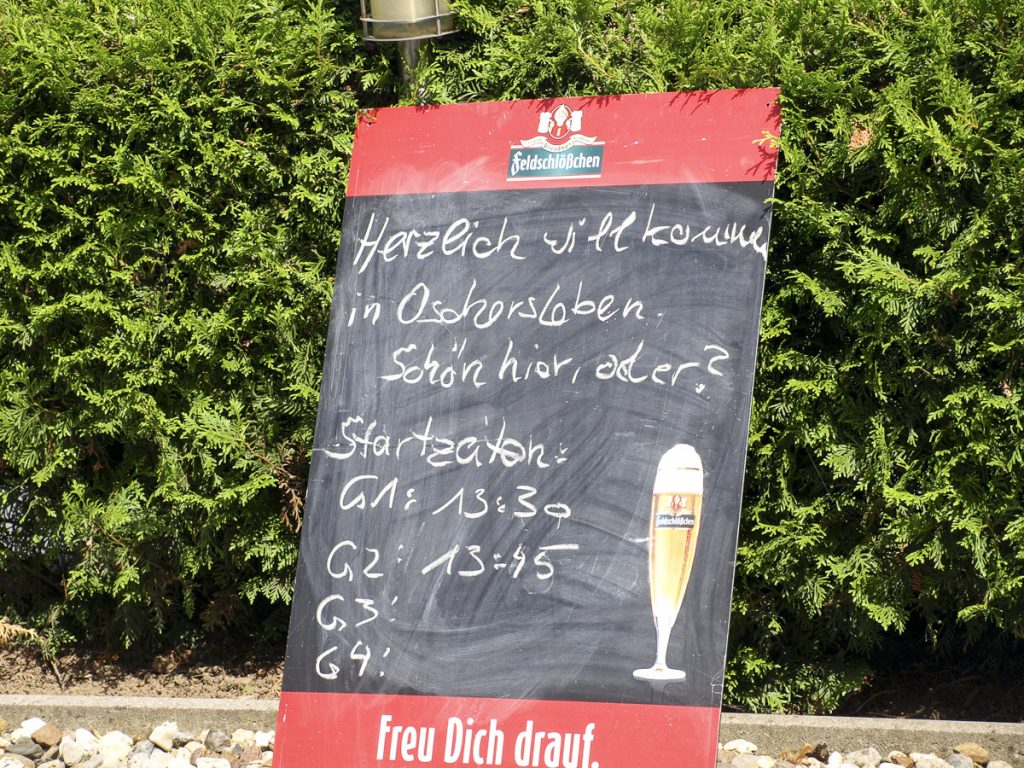 Feldschlößchen
Herzlich willkommen
in Oschersleben.
Schön hier, oder?
Startzeiten:
G1: 13:30
G2: 13:45
G3:
G4:
Feldschlößchen
Freu Dich drauf.